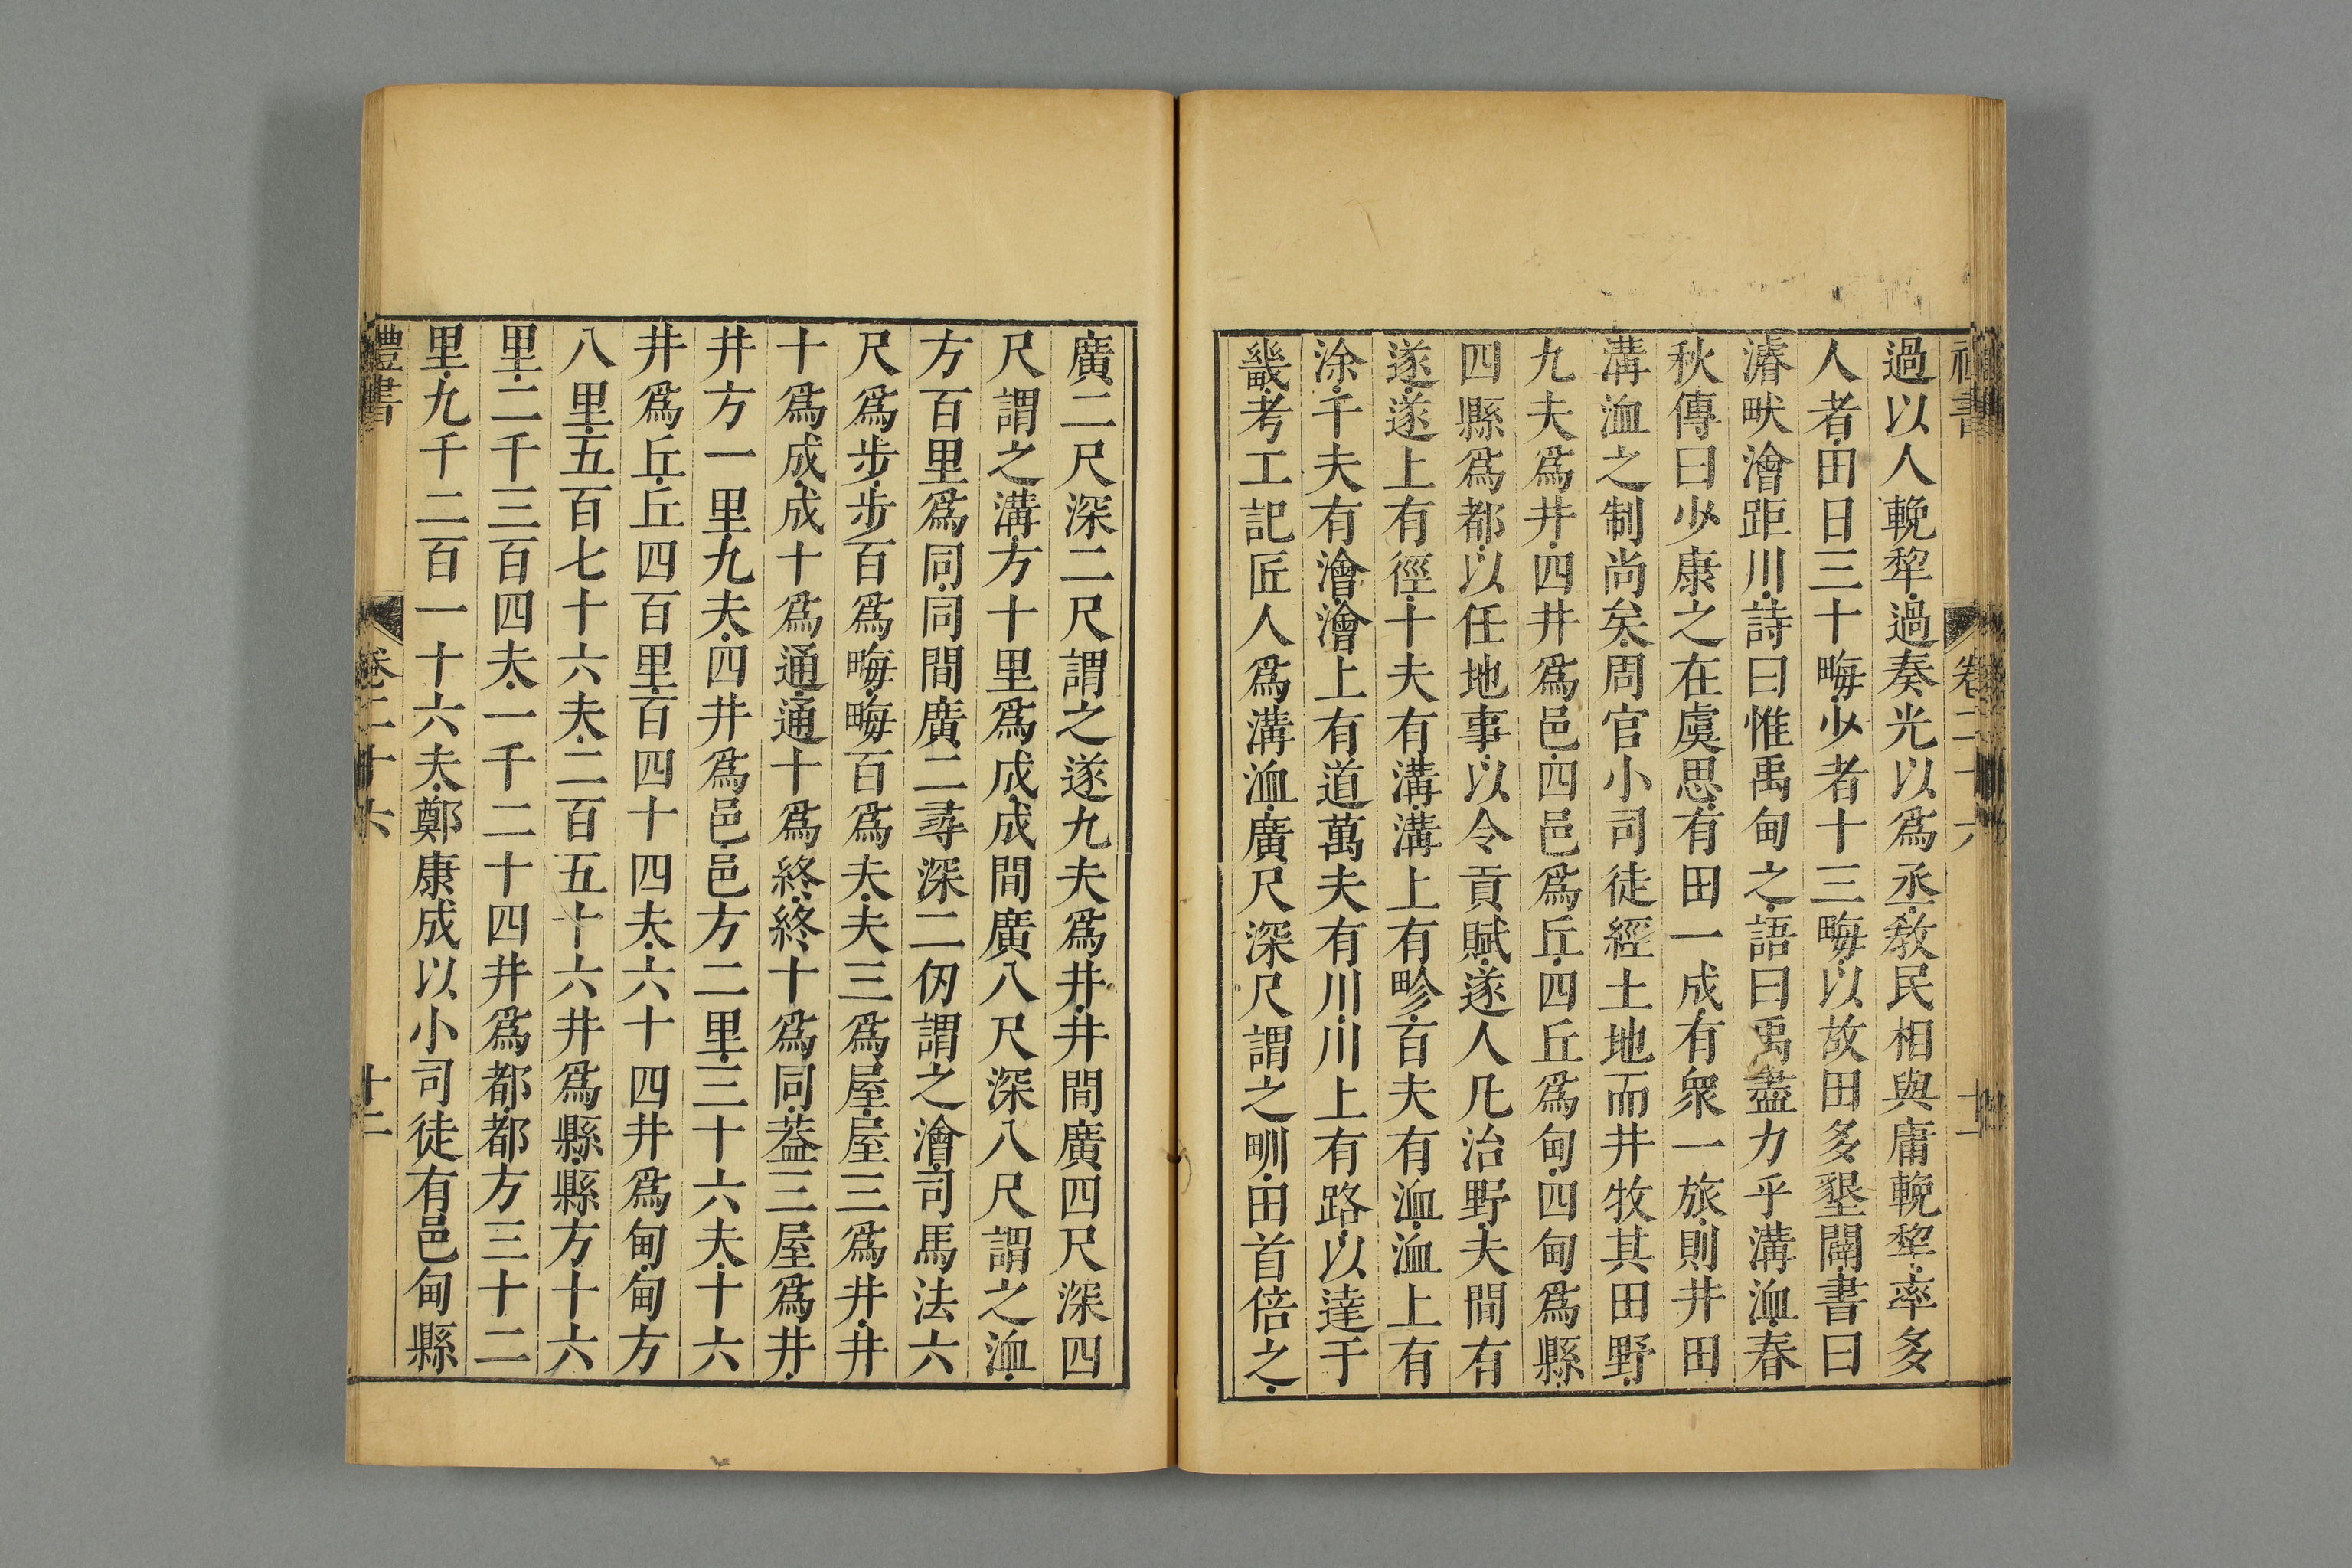 禮書
卷二十六
十一
過以人輓犂過奏光以爲丞敎民相與庸輓犂率多
人者田日三十畮少者十三畮以故田多墾闢書曰
濬畎澮距川詩曰惟禹甸之語曰禹盡力乎溝洫春
秋傳曰少康之在虞思有田一成有衆一旅則井田
溝洫之制尚矣周官小司徒經土地而井牧其田野
九夫爲井四井爲邑四邑爲丘四丘爲甸四甸爲縣
四縣爲都以任地事以令貢賦遂人凡治野夫間有
遂遂上有徑十夫有溝溝上有畛百夫有洫洫上有
涂千夫有澮澮上有道萬夫有川川上有路以達于
畿考工記匠人爲溝洫廣尺深尺謂之甽田首倍之
廣二尺深二尺謂之遂九夫爲井井間廣四尺深四
尺謂之溝方十里爲成成間廣八尺深八尺謂之洫
方百里爲同同間廣二尋深二仞謂之澮司馬法六
尺爲步步百爲畮畮百爲夫夫三爲屋屋三爲井井
十爲成成十爲通通十爲終終十爲同葢三屋爲井
井方一里九夫四井爲邑邑方二里三十六夫十六
井爲丘丘四百里百四十四夫六十四井爲甸甸方
八里五百七十六夫二百五十六井爲縣縣方十六
里二千三百四夫一千二十四井爲都都方三十二
里九千二百一十六夫鄭康成以小司徒有邑甸縣
禮書
卷二十六
十二